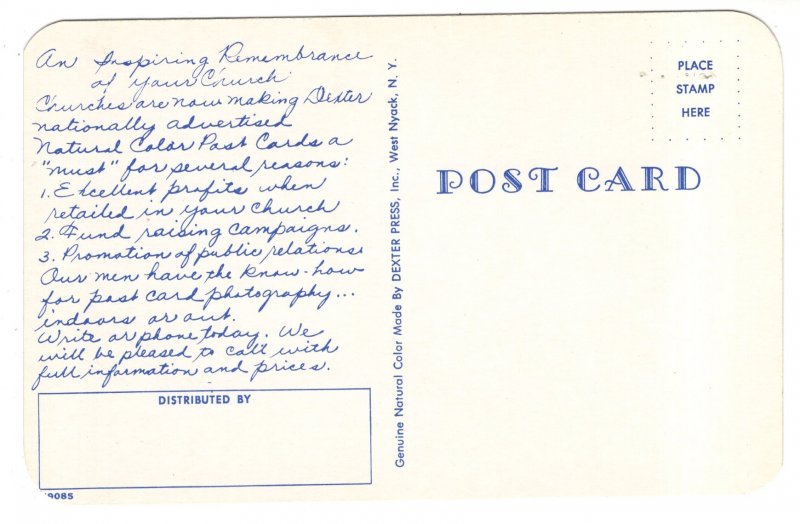 An Inspiring Remembrance
of your Church
Churches are now making Dexter
nationally advertised
Natural Color Post Cards a
"must" for several reasons:
1. Excellent profits when
retailed in your church
2. Fund raising campaigns.
3. Promotion of public relations
Our men have the know-how
for post card photography...
indoors or out.
Write or phone today. We
will be pleased to call with
full information and prices.
DISTRIBUTED BY
9085
Genuine Natural Color Made By DEXTER PRESS, Inc., West Nyack, N. Y.
PLACE
STAMP
HERE
POST CARD